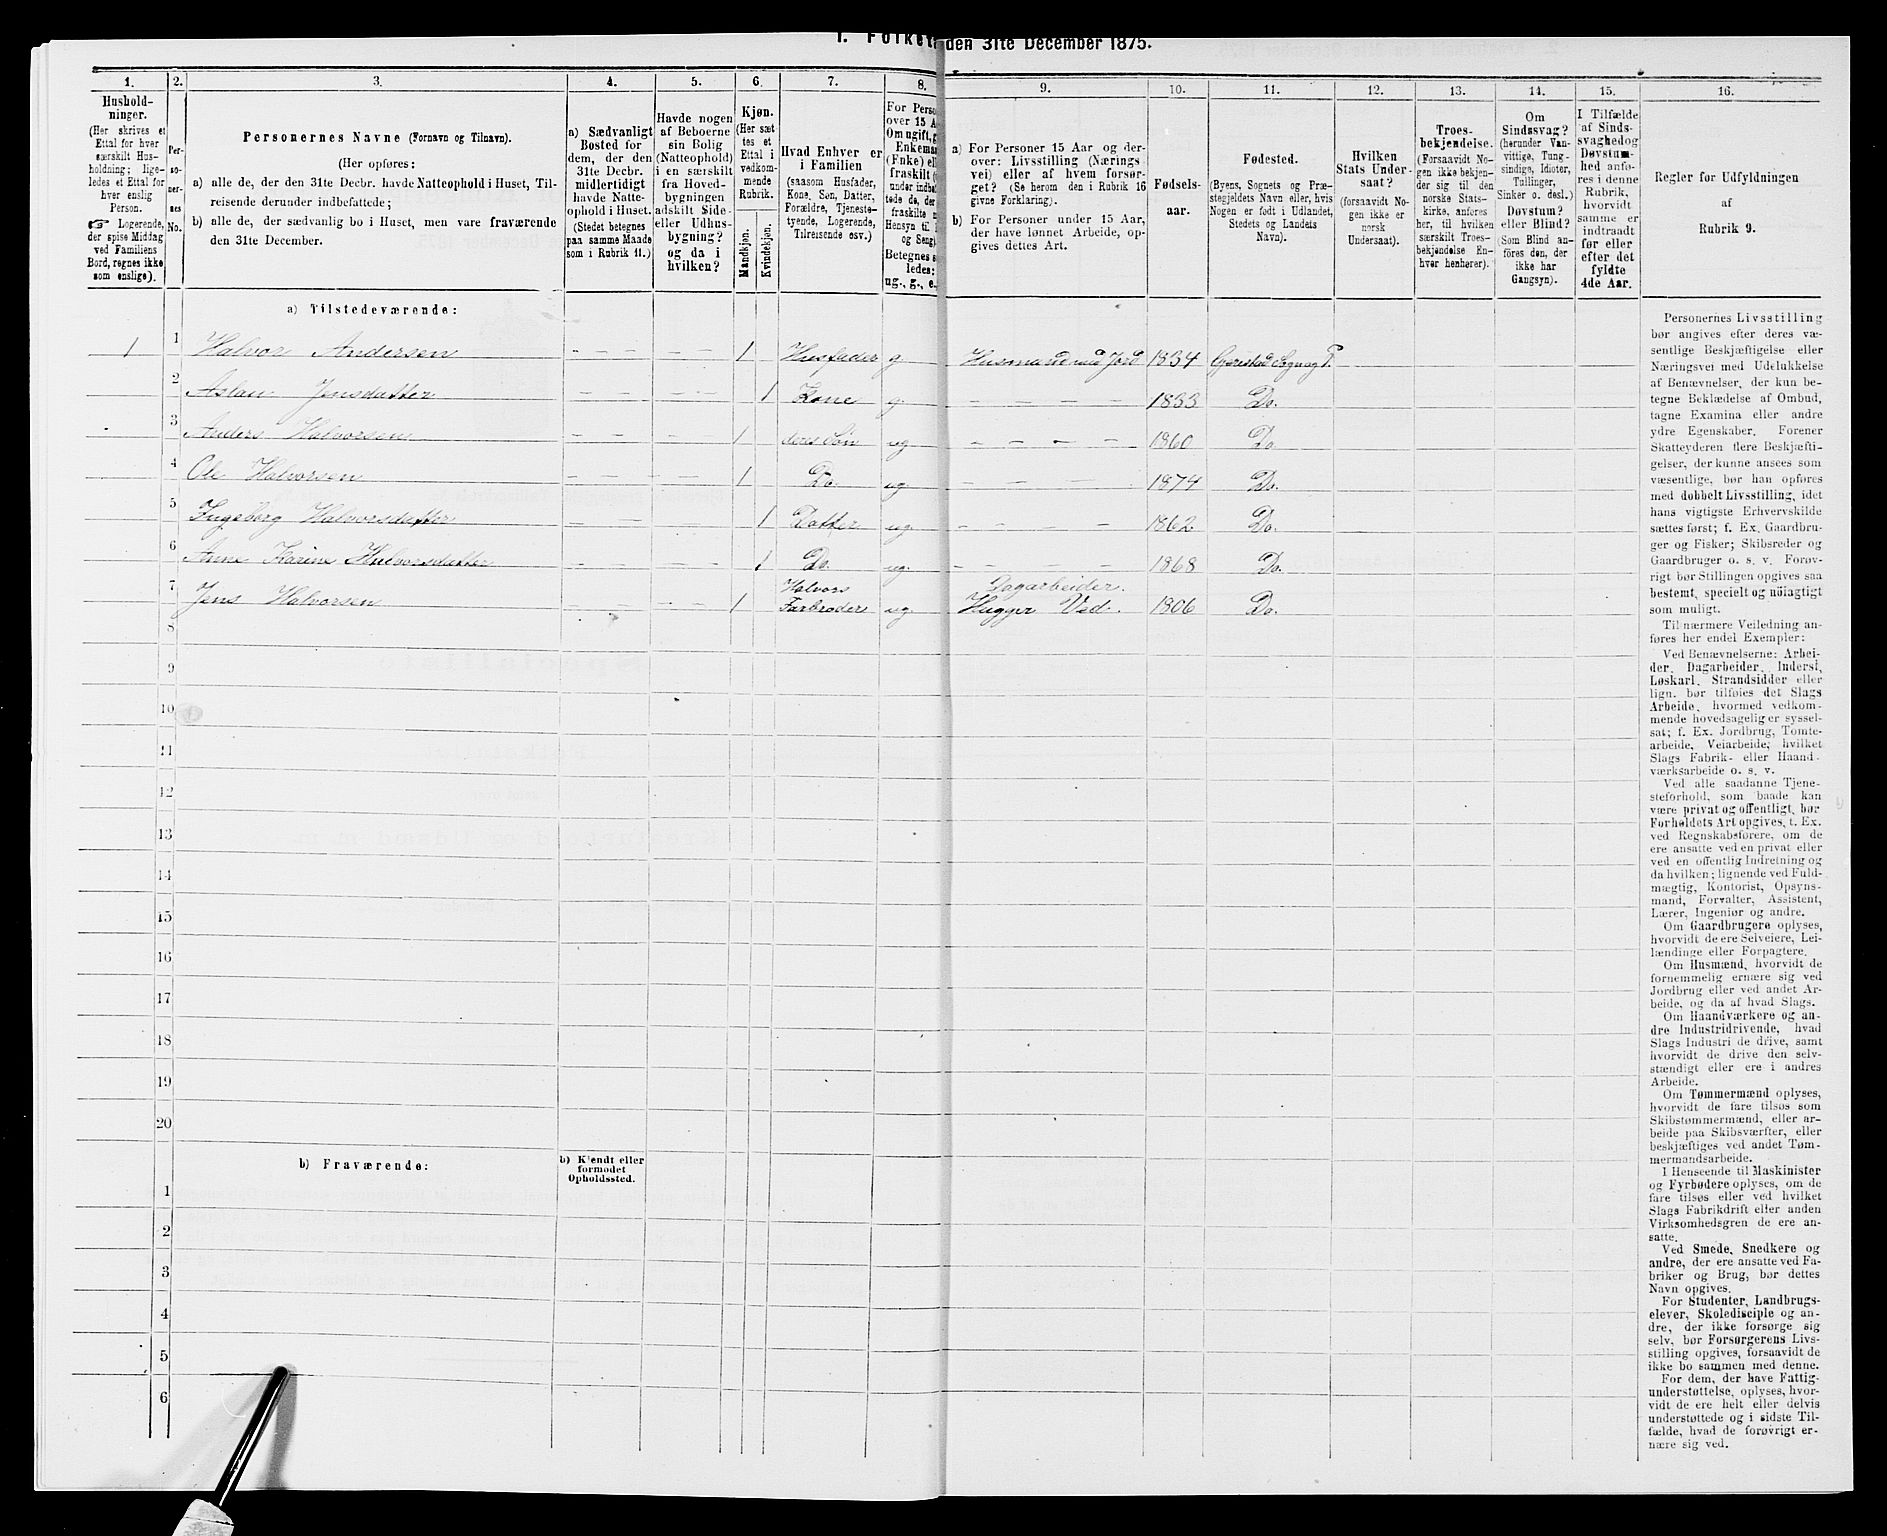 1. Folket
den 31te December 1875.
1.
2.
3.
4.
5.
6.
7.
8.
9.
10.
11.
12.
13.
14.
15.
16.
Hushold-
ninger.
(Her skrives et
Ettal for hver
særskilt Hus-
holdning; lige-
ledes et Ettal for
hver enslig
Person.
☞ Logerende,
der spise Middag
ved Familiens
Bord, regnes ikke
som enslige).
Per-
so-
ner-
nes
No.
Personernes Navne (Fornavn og Tilnavn).
(Her opføres:
a) alle de, der den 31te Decbr. havde Natteophold i Huset, Til-
reisende derunder indbefattede;
b) alle de, der sædvanlig bo i Huset, men vare fraværende
den 31te December.
a) Sædvanligt
Bosted for
dem, der den
31te Decbr.
midlertidigt
havde Natte-
ophold i Huset.
(Stedet betegnes
paa samme Maade
som i Rubrik 11.)
Havde nogen
af Beboerne
sin Bolig
(Natteophold)
i en særskilt
fra Hoved-
bygningen
adskilt Side-
eller Udhus-
bygning?
og da i
hvilken?
Kjøn.
(Her sæt
tes et
Ettal i
vedkom-
mende
Rubrik.
Mandkjøn.
Kvindekjøn.
Hvad Enhver er
i Familien
(saasom Husfader,
Kone, Søn, Datter,
Forældre, Tjeneste-
tyende, Logerende,
Tilreisende osv.)
For Perso
over 15 A
Om ugift, g
Enkema
(Fnke) ell
fraskilt (
under indbe
tede de, der
fraskilte
Hensyn til
og Seng)
Betegnes s
ledes:
ug., g., e.
a) For Personer 15 Aar og der-
over: Livsstilling (Nærings
vei) eller af hvem forsør-
get? (Se herom den i Rubrik 16
givne Forklaring).
b) For Personer under 15 Aar,
der have lønnet Arbeide, op-
gives dettes Art.
Fødsels-
aar.
Fødested.
(Byens, Sognets og Præ-
stegjeldets Navn eller, hvis
Nogen er født i Udlandet,
Stedets og Landets
Navn).
Hvilken
Stats Under-
saat?
(forsaavidt No-
gen ikke er
norsk
Undersaat).
Troes-
bekjendelse.
(Forsaavidt No-
gen ikke bekjen-
der sig til den
norske Stats-
kirke, anføres
her, til hvilken
særskilt Troes-
bekjendelse En-
hver henhører).
Om
Sindssvag?
(herunder Van-
vittige, Tung-
sindige, Idioter,
Tullinger,
Sinker o. desl.)
Døvstum?
eller Blind?
(Som Blind an-
føres den, der
ikke har
Gangsyn).
I Tilfælde
af Sinds-
svaghedog
Døvstum-
hed anfø-
res i denne
Rubrik,
hvorvidt
samme er
indtraadt
før eller
efter det
fyldte
4de Aar.
Regler for Udfyldningen
af
Rubrik 9.
a) Tilstedeværende:
1 1 Halvor Andersen – – – – – – 1 Husfader g Husmand med Jord 1834 Gjerestad Sogn og P.
2 Aslau Jensdatter – – – – – – 1 Kone g. – – – – 1833 Do.
3 Anders Halvorsen – – – – – – 1 deres Søn ug – – – – 1860 Do
4 Ole Halvorsen – – – – – – 1 Do. ug. – – – – 1874 Do.
5 Ingeborg Halvorsdatter – – – – – – 1 Datter ug. – – – – 1862. Do.
6 Anne Karine Halvorsdatter – – – – – – 1 Do. ug. – – – – 1868 Do.
Halvors Dagarbeider.
7 Jens Halvorsen – – – – – – 1 Farbroder ug. Hugger Ved. 1806 Do.
8
9
10
11
12
13
14
15
16
17
18
19
20
b) Fraværende:
b) Kjendt eller
formodet
Opholdssted.
1
2
3
4
5
6
Personernes Livsstilling
bør angives efter deres væ-
sentlige Beskjæftigelse eller
Næringsvei med Udelukkelse
af Benævnelser, der kun be-
tegne Beklædelse af Ombud,
tagne Examina eller andre
ydre Egenskaber. Forener
Skatteyderen flere Beskjæfti-
gelser, der kunne ansees som
væsentlige, bør han opføres
med dobbelt Livsstilling, idet
hans vigtigste Erhvervskilde
sættes først; f. Ex. Gaardbru-
ger og Fisker; Skibsreder og
Gaardbruger o. s. v. Forøv-
rigt bør Stillingen opgives saa
bestemt, specielt og nöiagtigt
som muligt.
Til nærmere Veiledning an-
føres her endel Exempler:
Ved Benævnelserne: Arbei-
der, Dagarbeider, Inderst,
Løskarl, Strandsidder eller
lign. bør tilføies det Slags
Arbeide, hvormed vedkom-
mende hovedsagelig er syssel-
sat; f. Ex. Jordbrug, Tomte-
arbeide, Veiarbeide, hvilket
Slags Fabrik- eller Haand-
værksarbeide o. s. v.
Ved alle saadanne Tjene-
steforhold, som baade kan
være privat og offentligt, bør
Forholdets Art opgives, f. Ex.
ved Regnskabsførere, om de
ere ansatte ved en privat eller
ved en offentlig Indretning og
da hvilken; lignende ved Fuld-
mægtig, Kontorist, Opsyns-
mand, Forvalter, Assistent,
Lærer, Ingeniør og andre.
Om Gaardbrugere oplyses,
hvorvidt de ere Selveiere, Lei-
lændinge eller Forpagtere.
Om Husmænd, hvorvidt de
fornemmelig ernære sig ved
Jordbrug eller ved andet Ar-
beide, og da af hvad Slags.
Om Haandværkere og an-
dre Industridrivende, hvad
Slags Industri de drive, samt
hvorvidt de drive den selv-
stændigt eller ere i andres
Arbeide.
Om Tømmermænd oplyses,
hvorvidt de fare tilsøs som
Skibstømmermænd, eller ar-
beide paa Skibsværfter, eller
beskjæftiges ved andet Tøm-
mermandsarbeide.
I Henseende til Maskinister
og Fyrbødere oplyses, om de
fare tilsøs eller ved hvilket
Slags Fabrikdrift eller anden
Virksomhedsgren de ere an-
satte.
Ved Smede, Snedkere og
andre, der ere ansatte ved Fa-
briker og Brug, bør dettes
Navn opgives.
For Studenter, Landbrugs-
elever, Skoledisciple og an-
dre, der ikke forsørge sig
selv, bør Forsørgerens Livs-
stilling opgives, forsaavidt de
ikke bo sammen med denne.
For dem, der have Fattig-
understøttelse, oplyses, hvor-
vidt de ere helt eller delvis
understøttede og i sidste Til-
fælde, hvad de forøvrigt er-
nære sig ved.